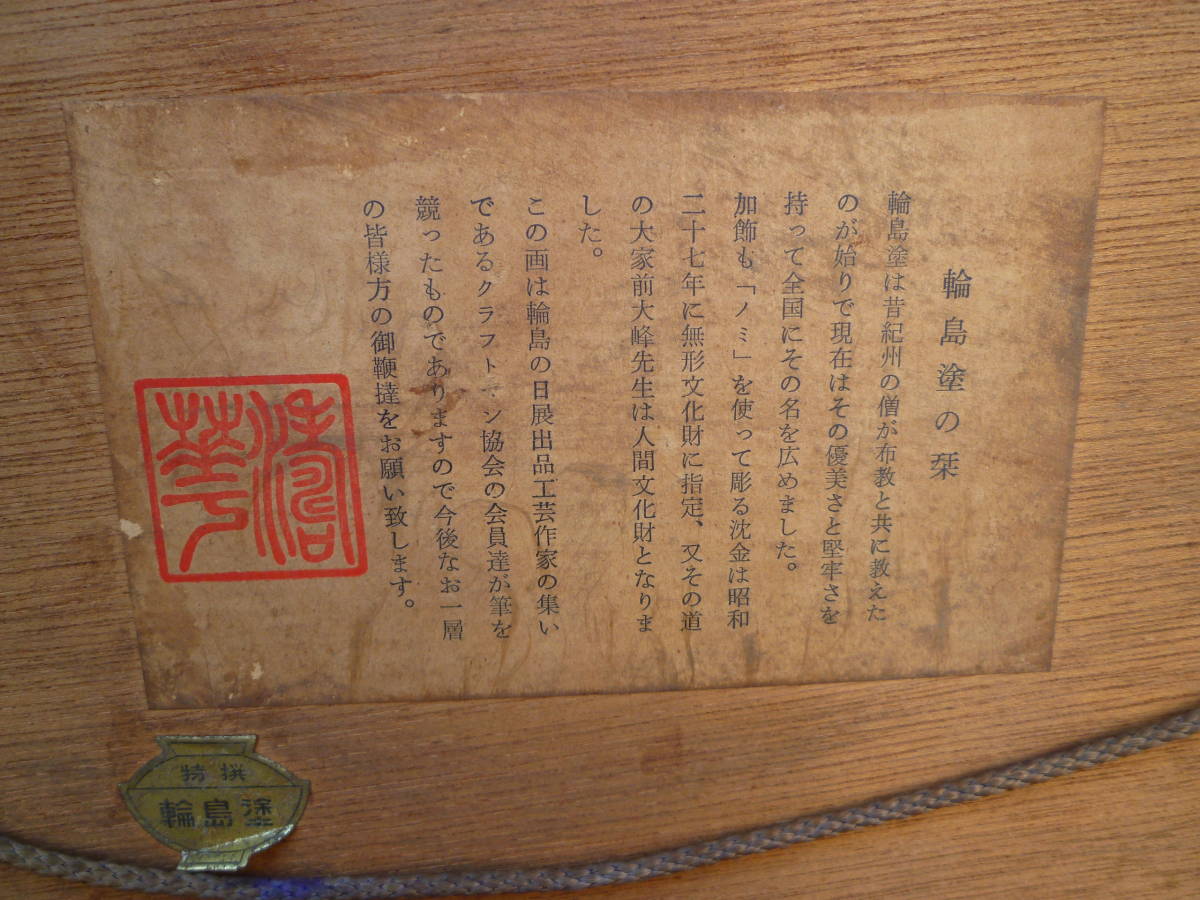 輪島塗の栞
輪島塗は昔紀州の僧が布教と共に教えた
のが始りで現在はその優美さと堅牢さを
持って全国にその名を広めました。
加飾も「ノミ」を使って彫る沈金は昭和
二十七年に無形文化財に指定、又その道
の大家前大峰先生は人間文化財となりま
した。
この画は輪島の日展出品工芸作家の集い
であるクラフトマン協会の会員達が筆を
競ったものでありますので今後なお一層
の皆様方の御鞭撻をお願い致します。
特撰
輪島塗